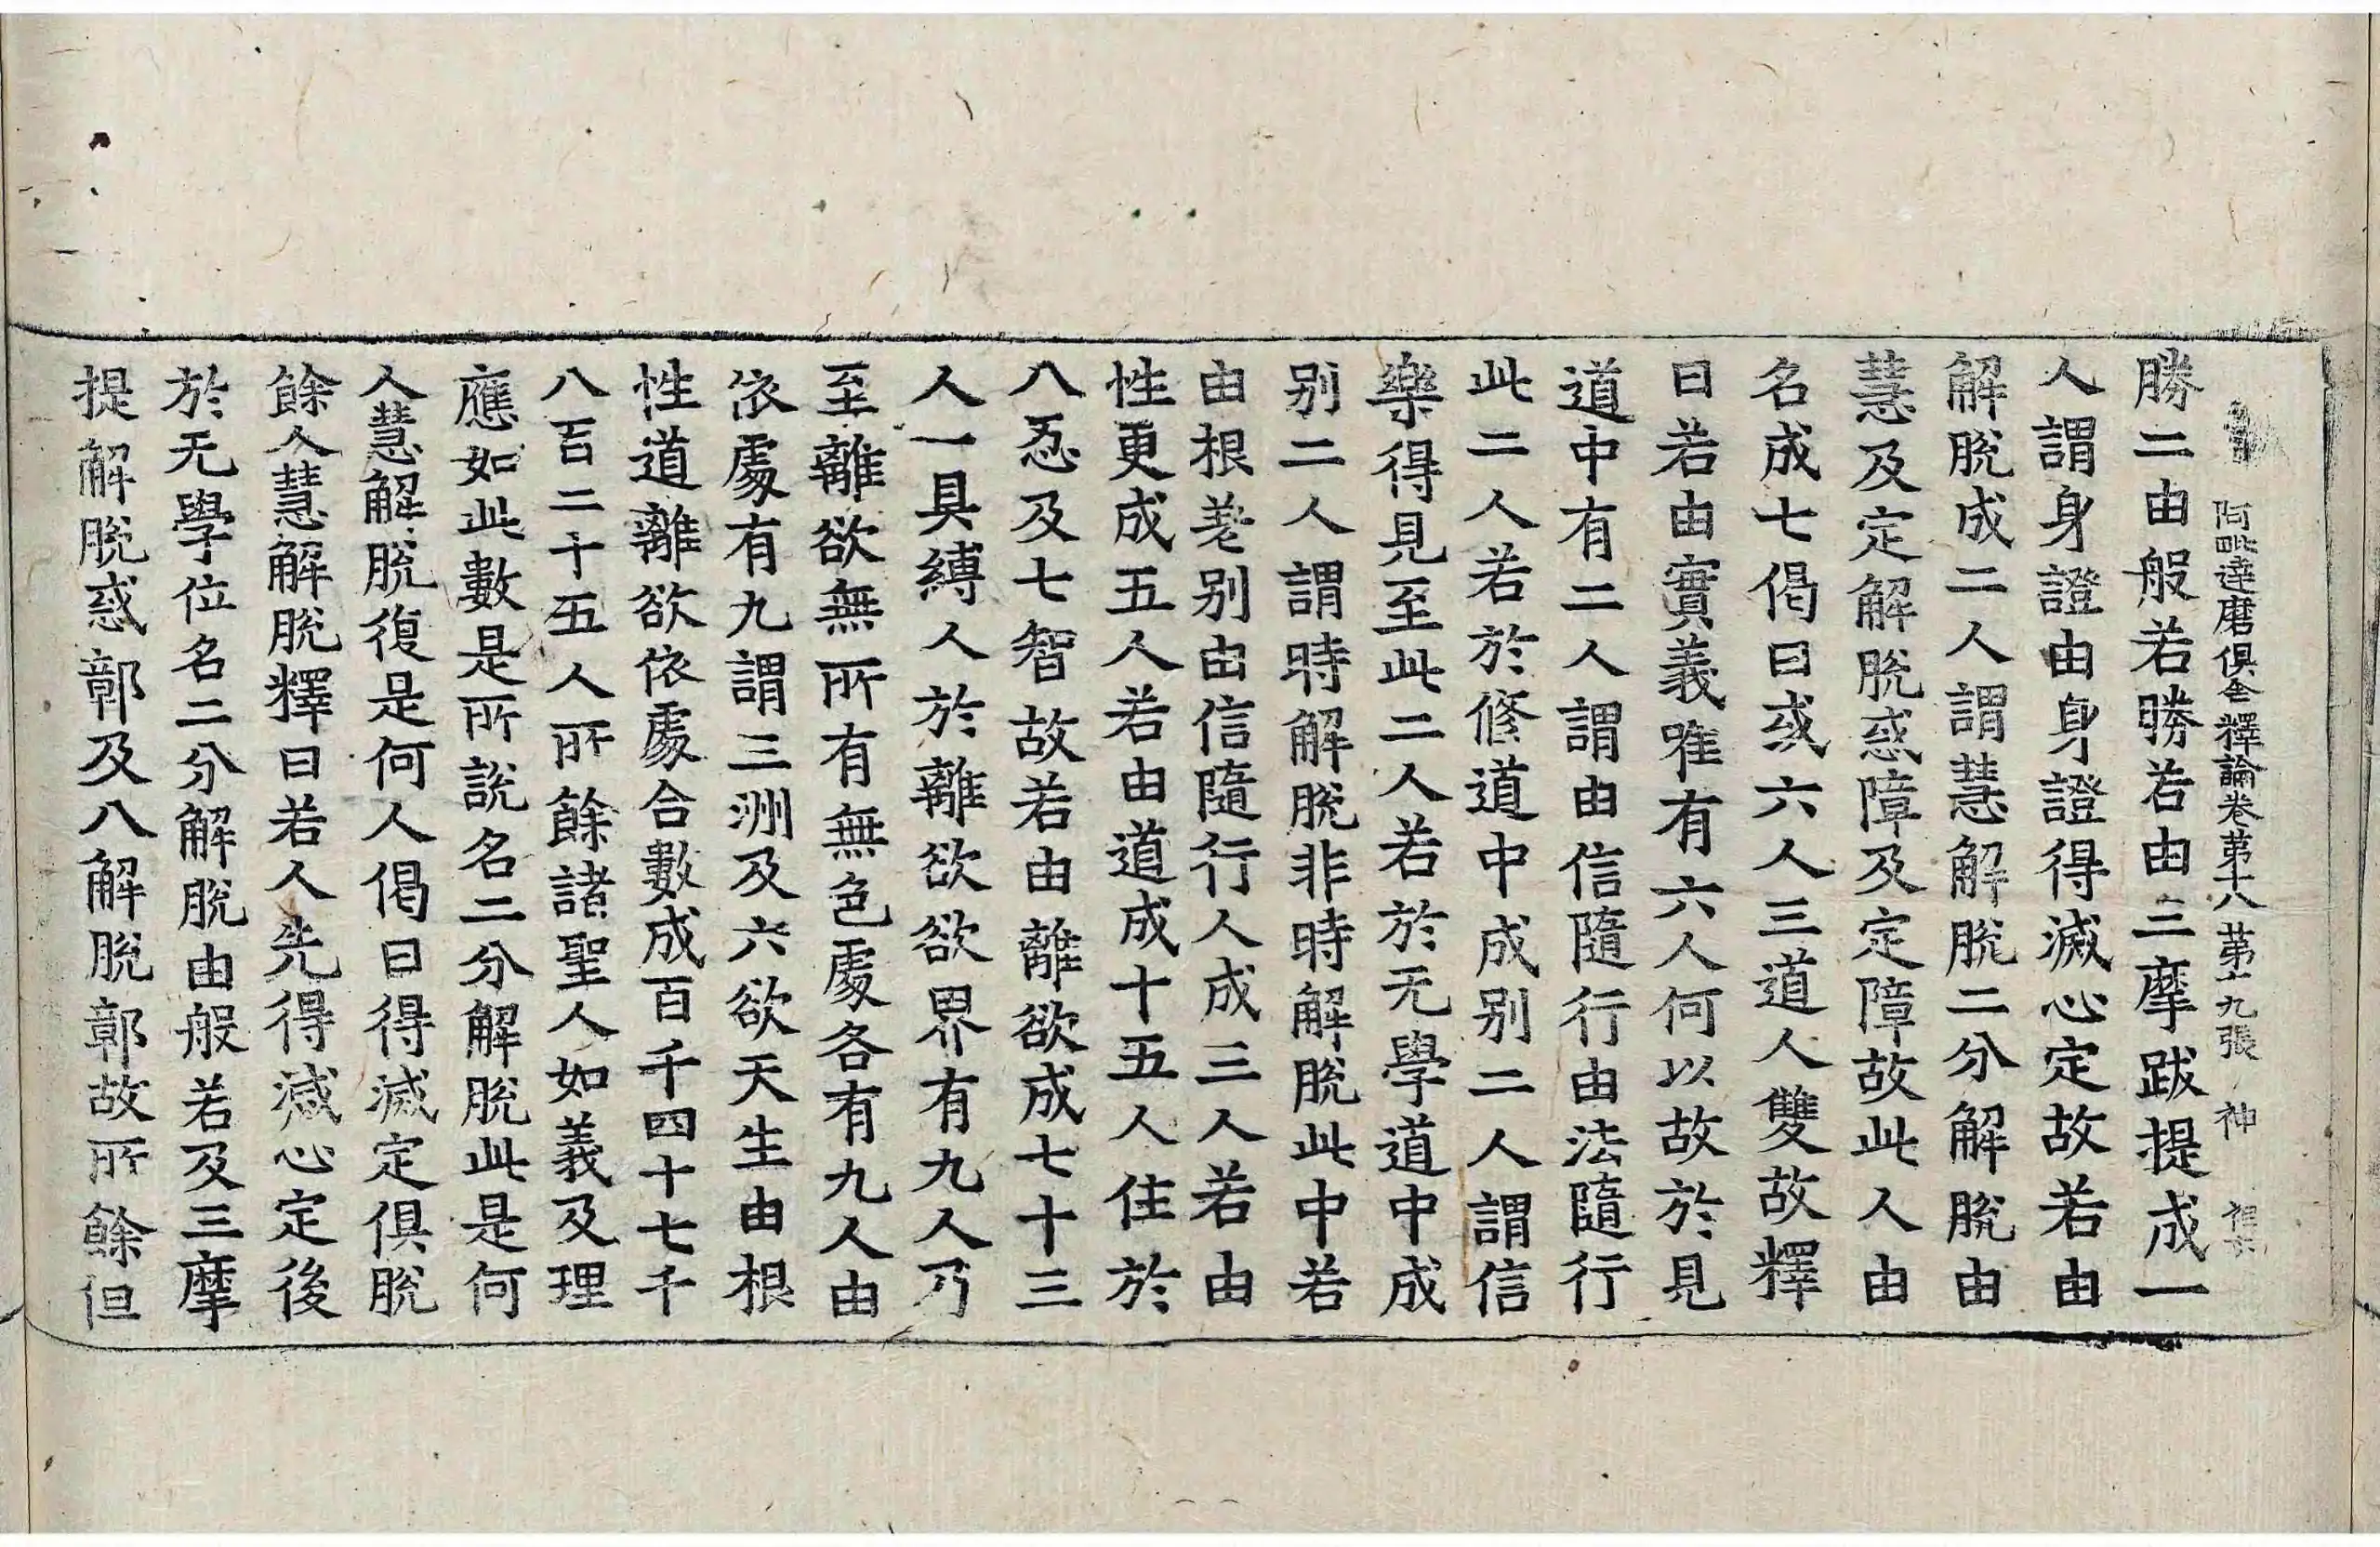 阿毗達磨俱舍釋論卷第十八 第十九張 神
勝二由般若勝若由三摩跋提成一
人謂身證由身證得滅心定故若由
解脫成二人謂慧解脫二分解脫由
慧及定解脫惑障及定障故此人由
名成七偈曰或六人三道人雙故釋
曰若由實義唯有六人何以故於見
道中有二人謂由信隨行由法隨行
此二人若於修道中成别二人謂信
樂得見至此二人若於无學道中成
别二人謂時解脫非時解脫此中若
由根差别由信隨行人成三人若由
性更成五人若由道成十五人住於
八忍及七智故若由離欲成七十三
人一具縛人於離欲欲界有九人乃
至離欲無所有無色處各有九人由
依處有九謂三洲及六欲天生由根
性道離欲依處合數成百千四十七千
八百二十五人所餘諸聖人如義及理
應如此數是所說名二分解脫此是何
人慧解脫復是何人偈曰得滅定俱脫
餘人慧解脫釋曰若人先得滅心定後
於无學位名二分解脫由般若及三摩
提解脫惑鄣及八解脫鄣故所餘但